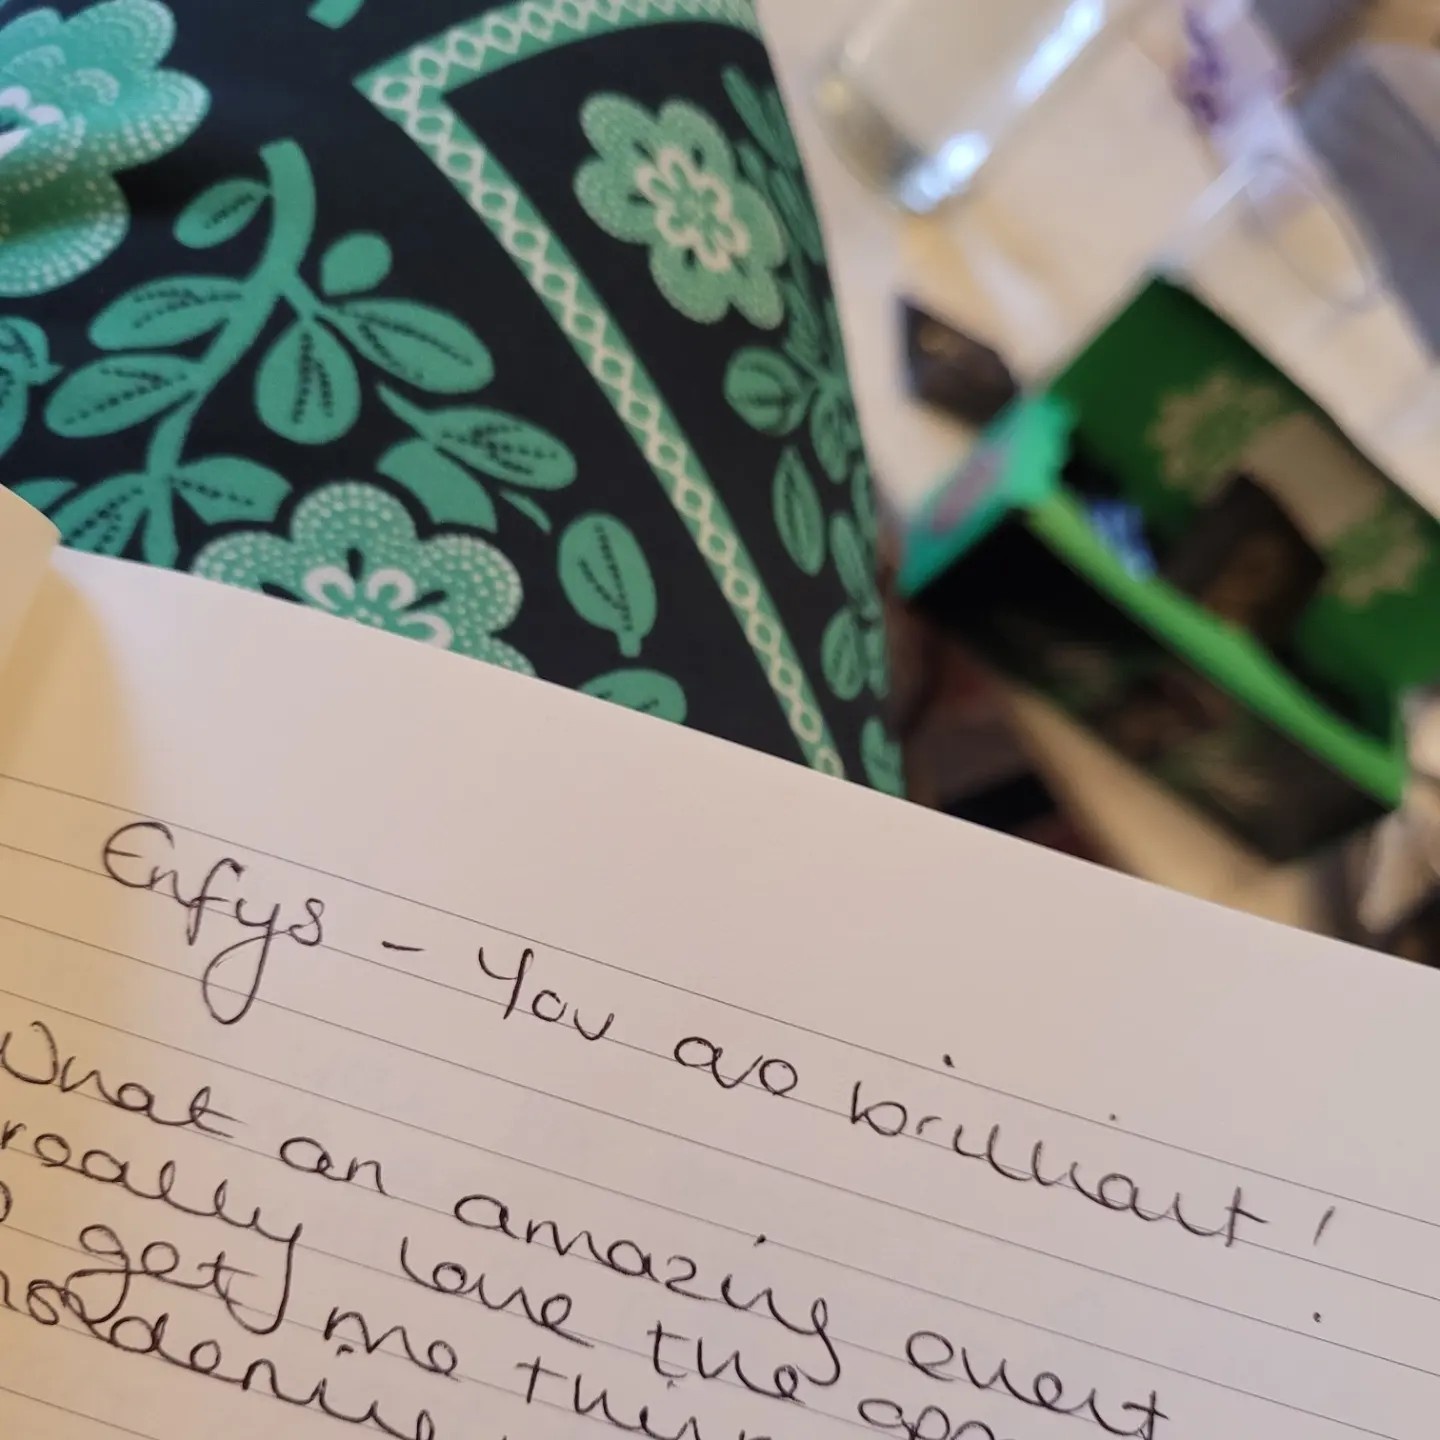 Enfys - You are brilliant!
What an amazing event
really love the
get me